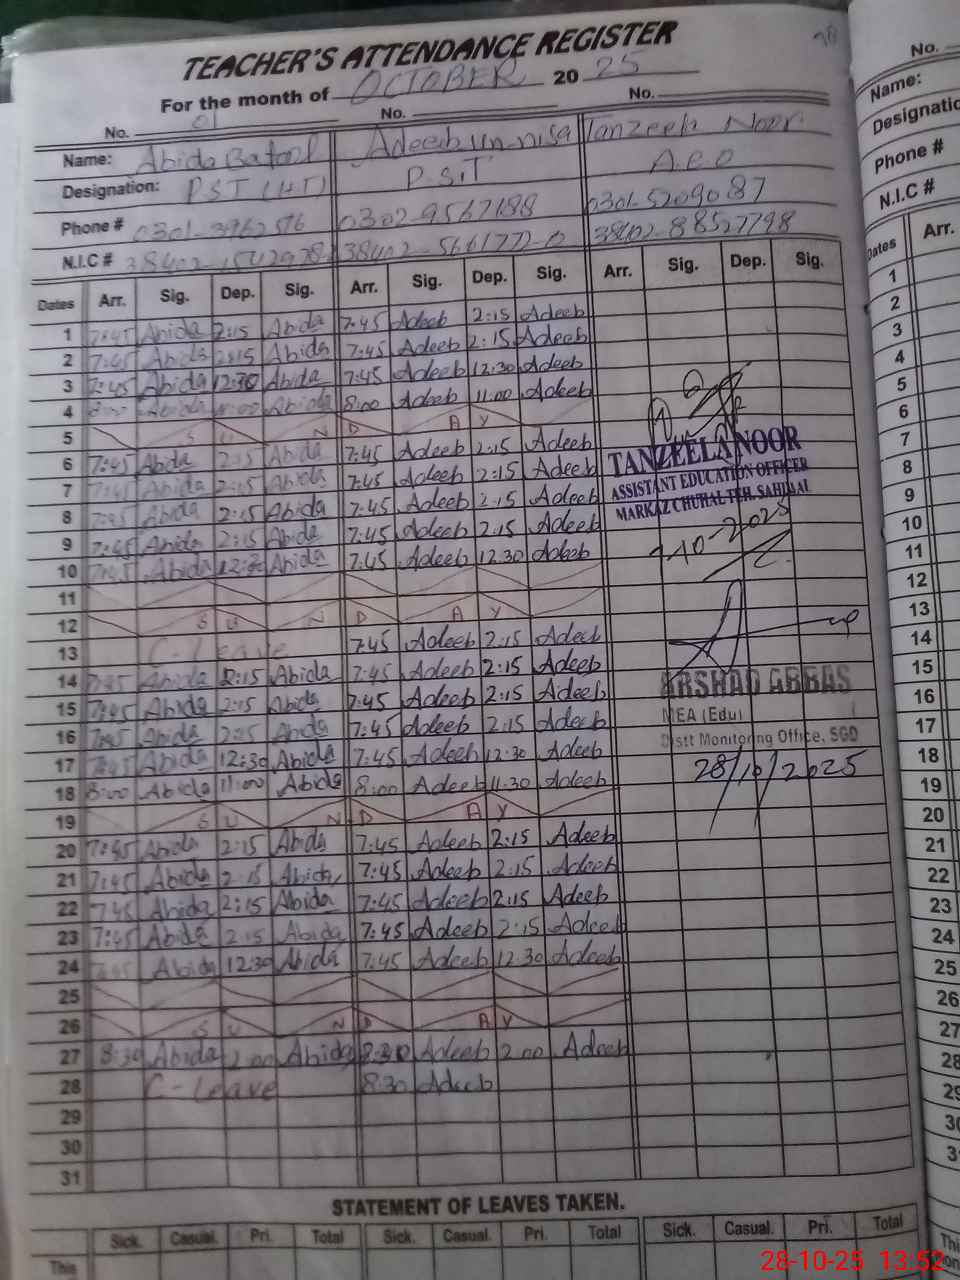 98
TEACHER'S ATTENDANCE REGISTER
For the month of OCTOBER 20 25
No. 01 No. No.
Name: Abida Batool Adeeb un nisa Tanzeela Noor
Designation: P.S.T (H.T) P.S.T A.E.O
Phone # 0301-3962516 0302-9567188 0301-5209087
N.I.C # 38402-1542978- 38402-5661772-0 38402-88527798
Dates Arr. Sig. Dep. Sig. Arr. Sig. Dep. Sig. Arr. Sig. Dep. Sig.
1 7:45 Abida 2:15 Abida 7:45 Adeeb 2:15 Adeeb
2 7:45 Abida 2:15 Abida 7:45 Adeeb 2:15 Adeeb
3 7:45 Abida 12:30 Abida 7:45 Adeeb 12:30 Adeeb
4 8:00 Abida 11:00 Abida 8:00 Adeeb 11:00 Adeeb
5 S U N D A Y
6 7:45 Abida 2:15 Abida 7:45 Adeeb 2:15 Adeeb
7 7:45 Abida 2:15 Abida 7:45 Adeeb 2:15 Adeeb
8 7:45 Abida 2:15 Abida 7:45 Adeeb 2:15 Adeeb
9 7:45 Abida 2:15 Abida 7:45 Adeeb 2:15 Adeeb
10 7:45 Abida 12:30 Abida 7:45 Adeeb 12:30 Adeeb
11
12 S U N D A Y
13 C-Leave 7:45 Adeeb 2:15 Adeeb
14 7:45 Abida 2:15 Abida 7:45 Adeeb 2:15 Adeeb
15 7:45 Abida 2:15 Abida 7:45 Adeeb 2:15 Adeeb
16 7:45 Abida 2:15 Abida 7:45 Adeeb 2:15 Adeeb
17 7:45 Abida 12:30 Abida 7:45 Adeeb 12:30 Adeeb
18 8:00 Abida 11:00 Abida 8:00 Adeeb 11:30 Adeeb
19 S U N D A Y
20 7:45 Abida 2:15 Abida 7:45 Adeeb 2:15 Adeeb
21 7:45 Abida 2:15 Abida 7:45 Adeeb 2:15 Adeeb
22 7:45 Abida 2:15 Abida 7:45 Adeeb 2:15 Adeeb
23 7:45 Abida 2:15 Abida 7:45 Adeeb 2:15 Adeeb
24 7:45 Abida 12:30 Abida 7:45 Adeeb 12:30 Adeeb
25
26 S U N D A Y
27 8:30 Abida 2:00 Abida 8:30 Adeeb 2:00 Adeeb
28 C-Leave 8:30 Adeeb
29
30
31
TANZEELA NOOR
ASSISTANT EDUCATION OFFICER
MARKAZ CHUHAL TEH. SAHIWAL
7-10-2025
ARSHAD ABBAS
MEA (Edu)
Distt Monitoring Office, SGD
28/10/2025
STATEMENT OF LEAVES TAKEN.
Sick. Casual. Pri. Total Sick. Casual. Pri. Total Sick. Casual. Pri. Total
This
No.
Name:
Designatio
Phone #
N.I.C #
Dates Arr.
1
2
3
4
5
6
7
8
9
10
11
12
13
14
15
16
17
18
19
20
21
22
23
24
25
26
27
28
29
30
3
28-10-25 13:52